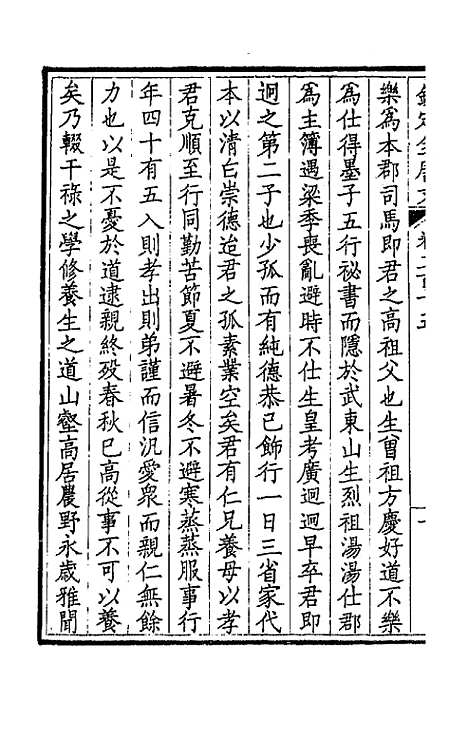 樂為本郡司馬即君之高祖父也生曾祖方慶好道不樂
為仕得墨子五行祕書而隱於武東山生烈祖湯湯仕郡
為主簿遇梁季喪亂避時不仕生皇考廣迥迥早卒君即
迥之第二子也少孤而有純德恭已飾行一日三省家代
本以清白崇德迨君之孤素業空矣君有仁兄養母以孝
君克順至行同勤苦節夏不避暑冬不避寒蒸蒸服事行
年四十有五入則孝出則弟謹而信汎愛衆而親仁無餘
力也以是不憂於道逮親終歿春秋已高從事不可以養
矣乃輟干祿之學修養生之道山壑高居農野永歲雅聞